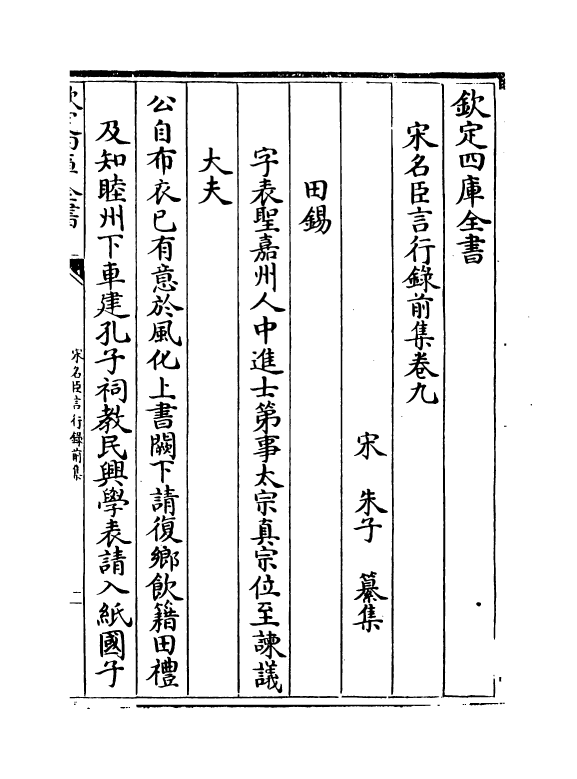 欽定四庫全書
宋名臣言行錄前集卷九
宋 朱子 纂集
田錫
字表聖嘉州人中進士第事太宗真宗位至諫議
大夫
公自布衣已有意於風化上書闕下請復鄉飲籍田禮
及知睦州下車建孔子祠教民興學表請入紙國子
宋名臣言行錄前集
二